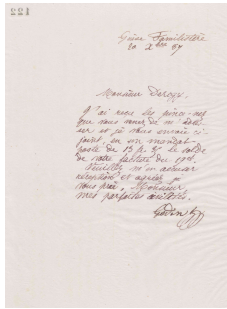 221
Guise Familistère
20 Xbre 87
Monsieur Deroys,
J'ai reçu les pince-nez
que vous venez de m'
et je vous envoie ci-
joint, en un mandat-
poste de 13 f. le solde
de votre facture du
Veuillez m'en accuser
réception et agréer je
vous prie, Monsieur
mes parfaites civilités.
Godin